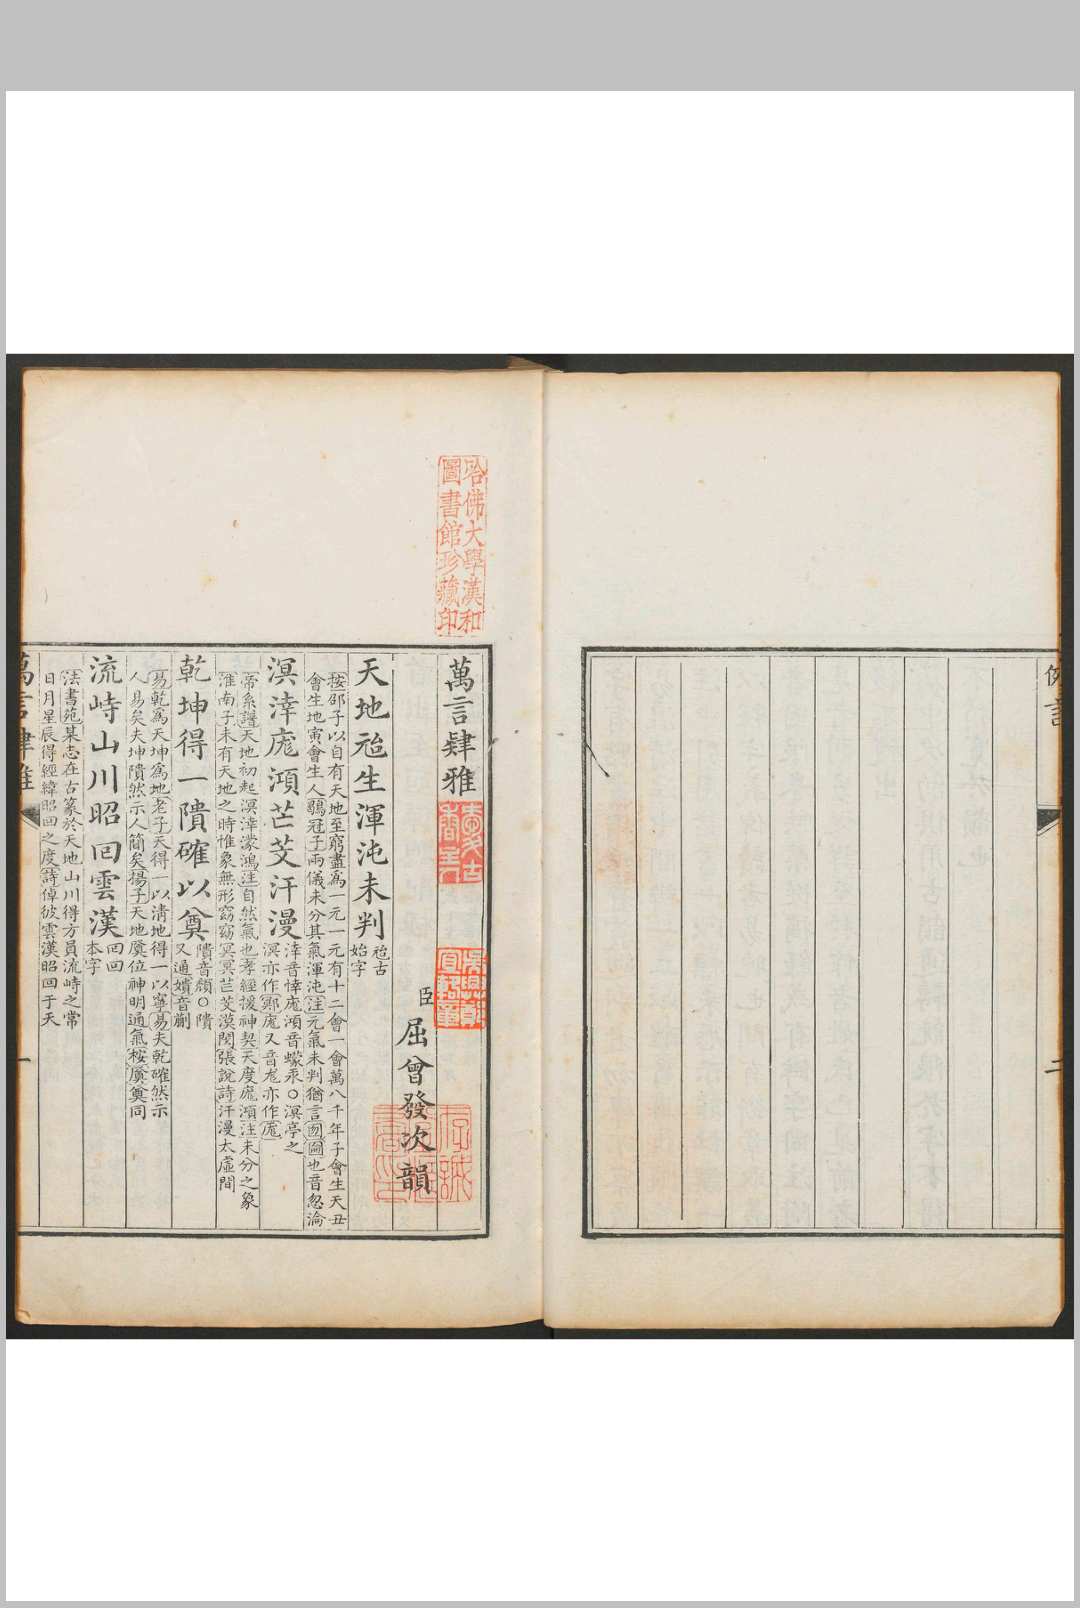 例言
二
哈佛大學漢和
圖書館珍藏印
萬言肄雅
臣屈曾發次韻
天地兘生渾沌未判兘古
始字
按邵子以自有天地至窮盡爲一元一元有十二會一會萬八千年子會生天丑
會生地寅會生人鶡冠子兩儀未分其氣渾沌注元氣未判猶言囫圇也音忽淪
溟涬庬澒芒芠汗漫涬音悻庬澒音蠓汞○溟亭之
溟亦作鄍庬又音尨亦作厖
帝系譜天地初起溟涬濛鴻注自然氣也孝經援神契天度庬澒注未分之象
淮南子未有天地之時惟象無形窈窈冥冥芒芠漠閔張說詩汗漫太虛間
乾坤得一隤確以奠隤音頹○隤
又通嬇音蒯
易乾爲天坤爲地老子天得一以清地得一以寧易夫乾確然示
人易矣夫坤隤然示人簡矣揚子天地奠位神明通氣桉奠奠同
流峙山川昭囘雲漢囘回
本字
法書苑某志在古篆於天地山川得方員流峙之常
日月星辰得經緯昭回之度詩倬彼雲漢昭回于天
萬言肄雅
一